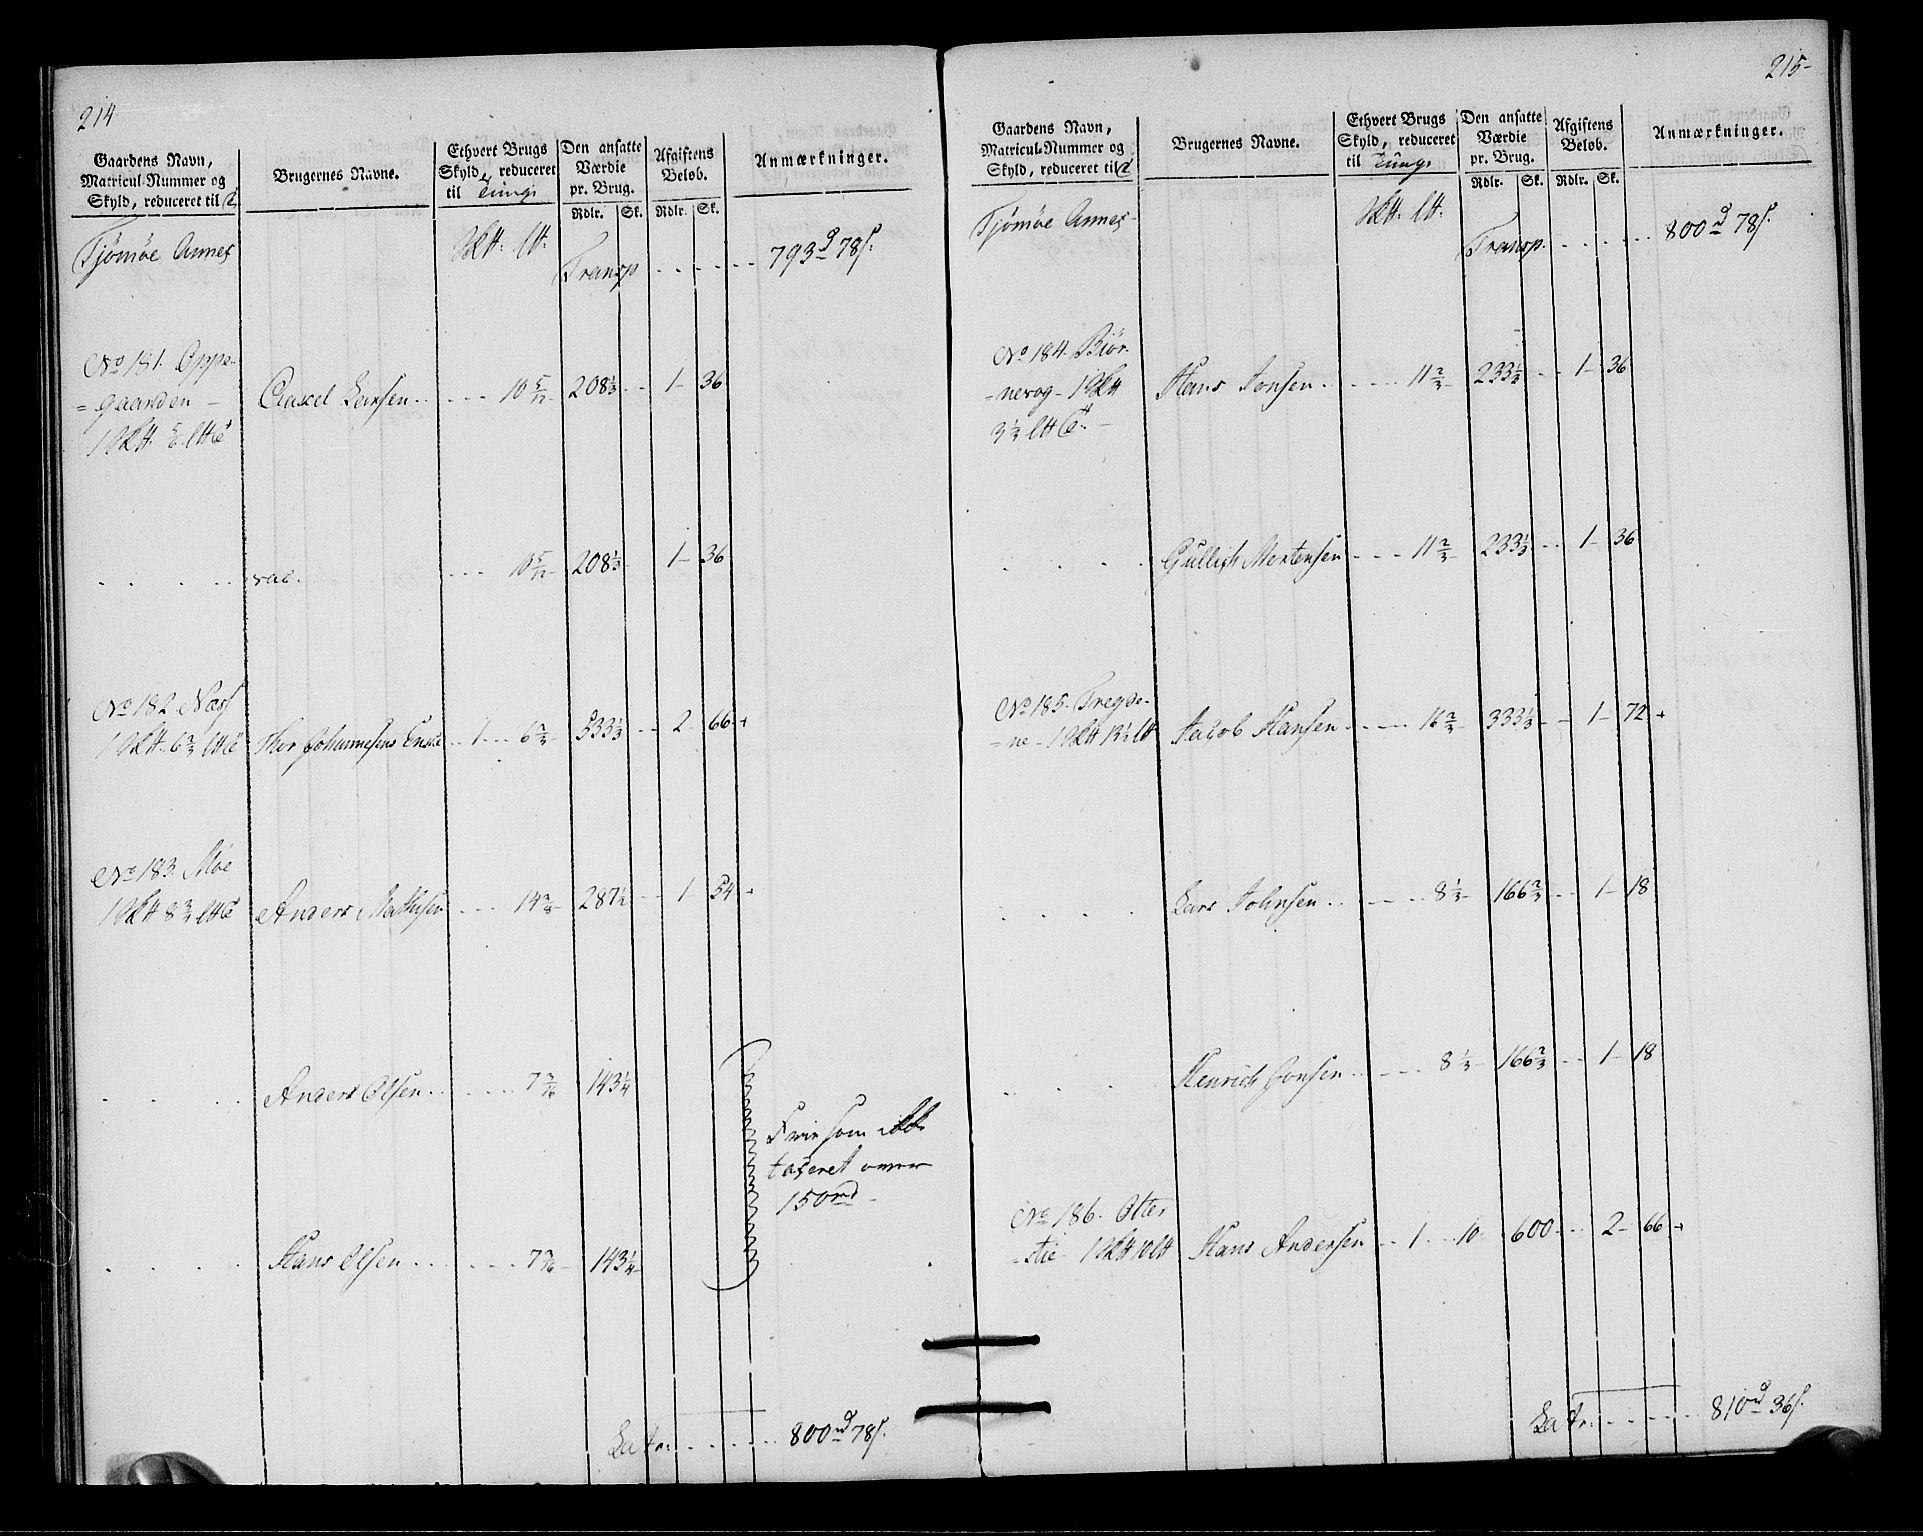 214
Gaardens Navn,
Matricul-Nummer og
Skyld, reduceret til
Brugernes Navne.
Ethvert Brugs
Skyld, reduceret
til Tunge
Den ansatte
Værdie
pr. Brug.
Rdlr. Sk.
Afgiftens
Beløb.
Rdlr. Sk.
Anmærkninger.
Tjømøe Annex
Transp . . . . . . 793 78
No 181. Oppe-
=gaarden -
1
Larsen . . . . . 10 5/12 208 1/3 - - 1 - 36
. . . . . vac. . . . 10 5/12 208 1/3 1 - 36
No 182. Næss
6 2/3
Thor Johannesens Enke . . 1 . . . 6 2/3 533 1/3 - - 2 - 66
No 183. Møe
8 3/4
Anders Mathisen . . . 14 3/8 287 1/2 - - 1 - 54
. . . . Anders Olsen . . . . . . 7 3/16 143 1/4
Frie som ikke
taxeret over
150
. . . . Hans Olsen . . . . . . 7 3/16 143 1/4
Latr. . . . . . . 800 78
215
Gaardens Navn,
Matricul-Nummer og
Skyld, reduceret til
Brugernes Navne.
Ethvert Brugs
Skyld, reduceret
til Tunge
Den ansatte
Værdie
pr. Brug.
Rdlr. Sk.
Afgiftens
Beløb.
Rdlr. Sk.
Anmærkninger.
Tjømøe Annex
Transp. . . . . . 800 78
No 184. Biør-
=nevog - 1
3 1/3
Hans Jonsen . . . . . 11 2/3 233 1/3 - - 1 - 36
. . . . Mortensen . . . 11 2/3 233 1/3 - - 1 - 36
No 185.
=ne - 1
Jacob Hansen . . . . 16 2/3 333 1/3 - - 1 - 72
. . . . Lars Johnsen . . . . . 8 1/3 166 2/3 - - 1 - 18
. . . Henrich Jonsen . . . . 8 1/3 166 2/3 - - 1 - 18
No 186. Otter
=stie - 1
Hans Andersen . . 1 . . . 10 600 - - 2 - 66
Latr. . . . . . . 810 36